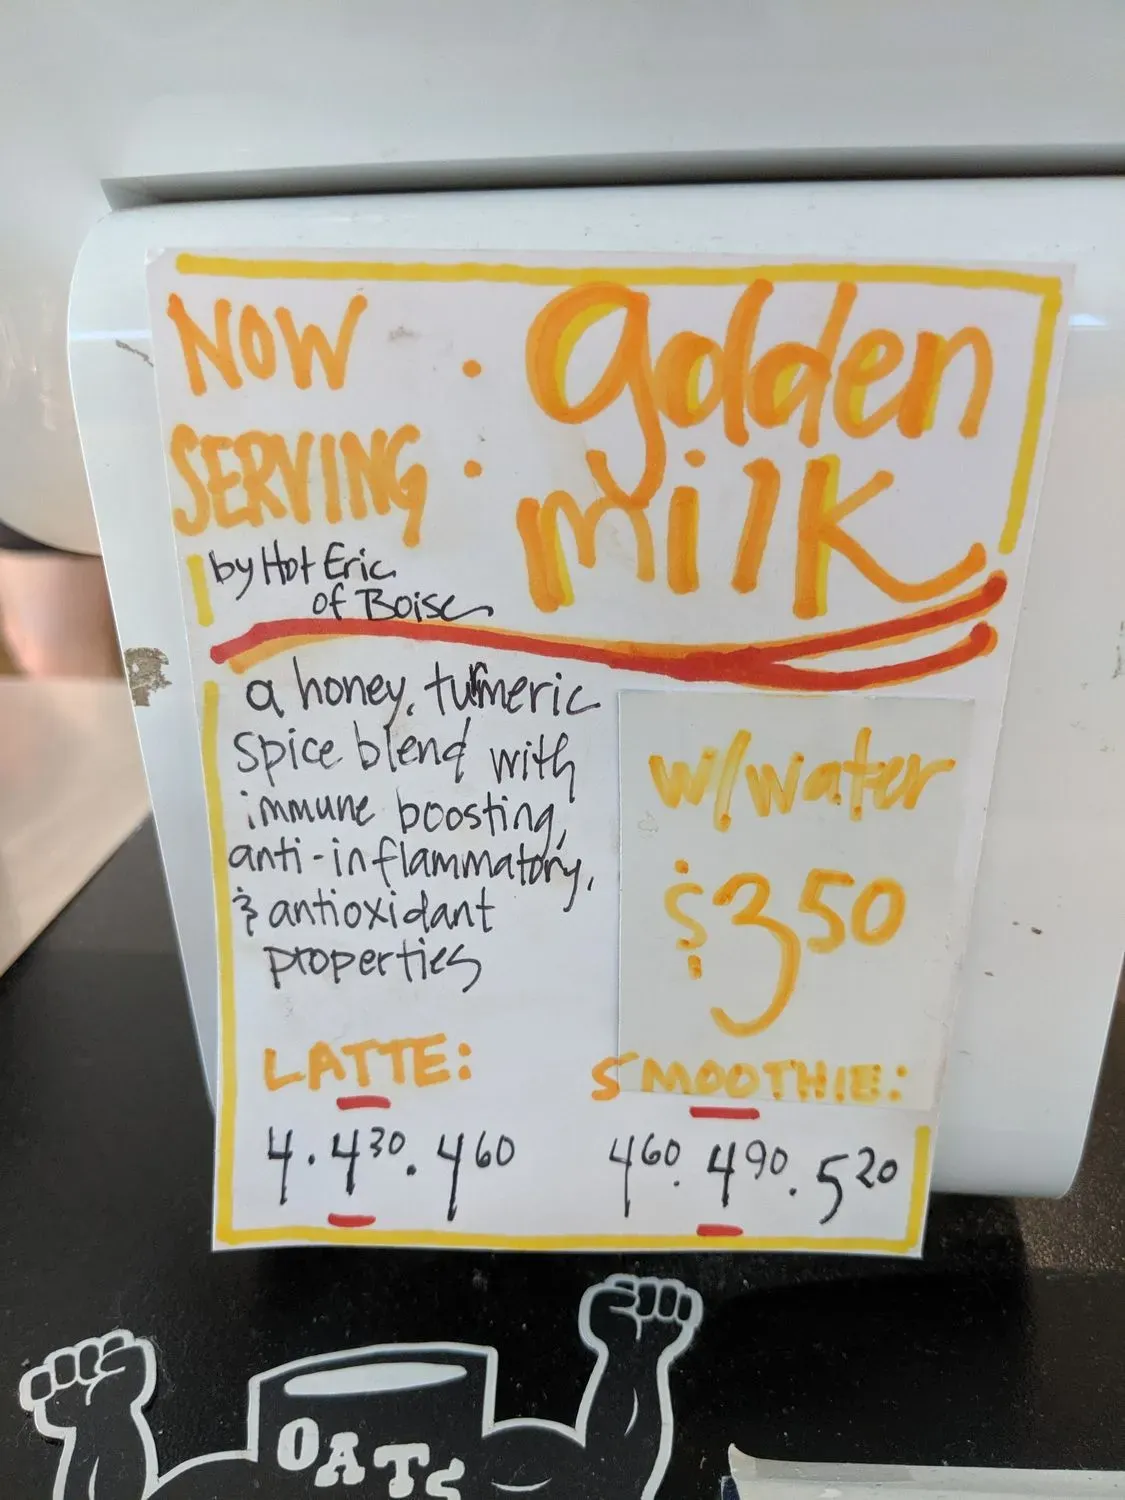 NOW
SERVING
:
golden
milk
by Hot Eric
of Boise
a honey, turmeric
spice blend with
immune boosting,
anti-inflammatory,
& antioxidant
properties
w/water
$350
LATTE:
4 . 430 . 460
SMOOTHIE:
460 . 490 . 520
OATS